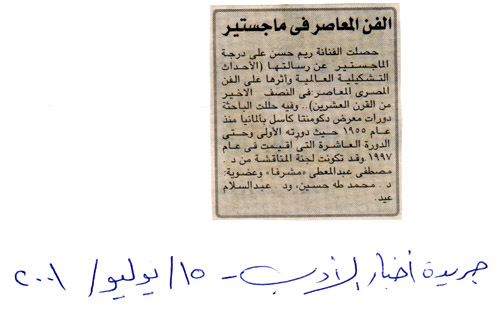 الفن المعاصر فى ماجستير
حصلت الفنانة ريم حسن على درجة
الماجستير عن رسالتها (الأحداث
التشكيلية العالمية وأثرها على الفن
المصرى المعاصر فى النصف الاخير
من القرن العشرين).. وفيه حللت الباحثة
دورات معرض دكومنتا كاسل بألمانيا منذ
عام ١٩٥٥ حيث دورته الأولى وحتى
الدورة العاشرة التى أقيمت فى عام
١٩٩٧ وقد تكونت لجنة المناقشة من د.
مصطفى عبدالمعطى «مشرفا» وعضوية:
د. محمد طه حسين، ود. عبدالسلام
عيد.
جريدة أخبار الأدب - ١٥/ يوليو/ ٢٠٠١